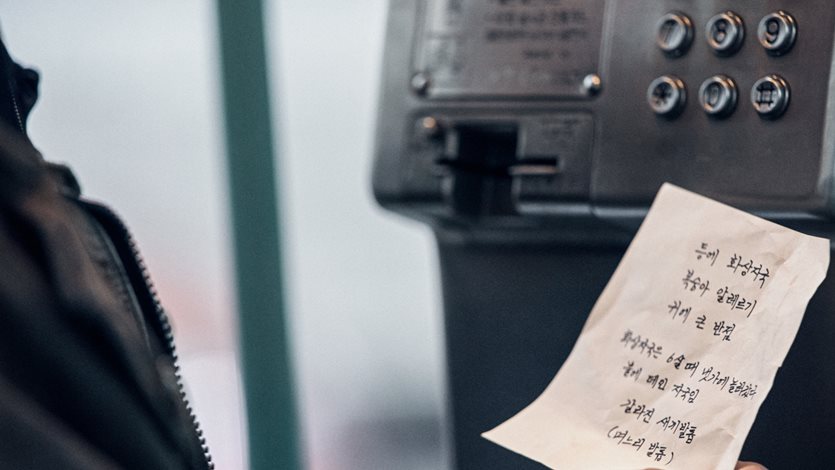 7 8 9
* 0 #
등에 화상자국
복숭아 알레르기
귀에 큰 반점
화상자국은 6살때 냇가에 놀러갔다
불에 데인 자국임
갈라진 새끼발톱
(며느리 발톱)